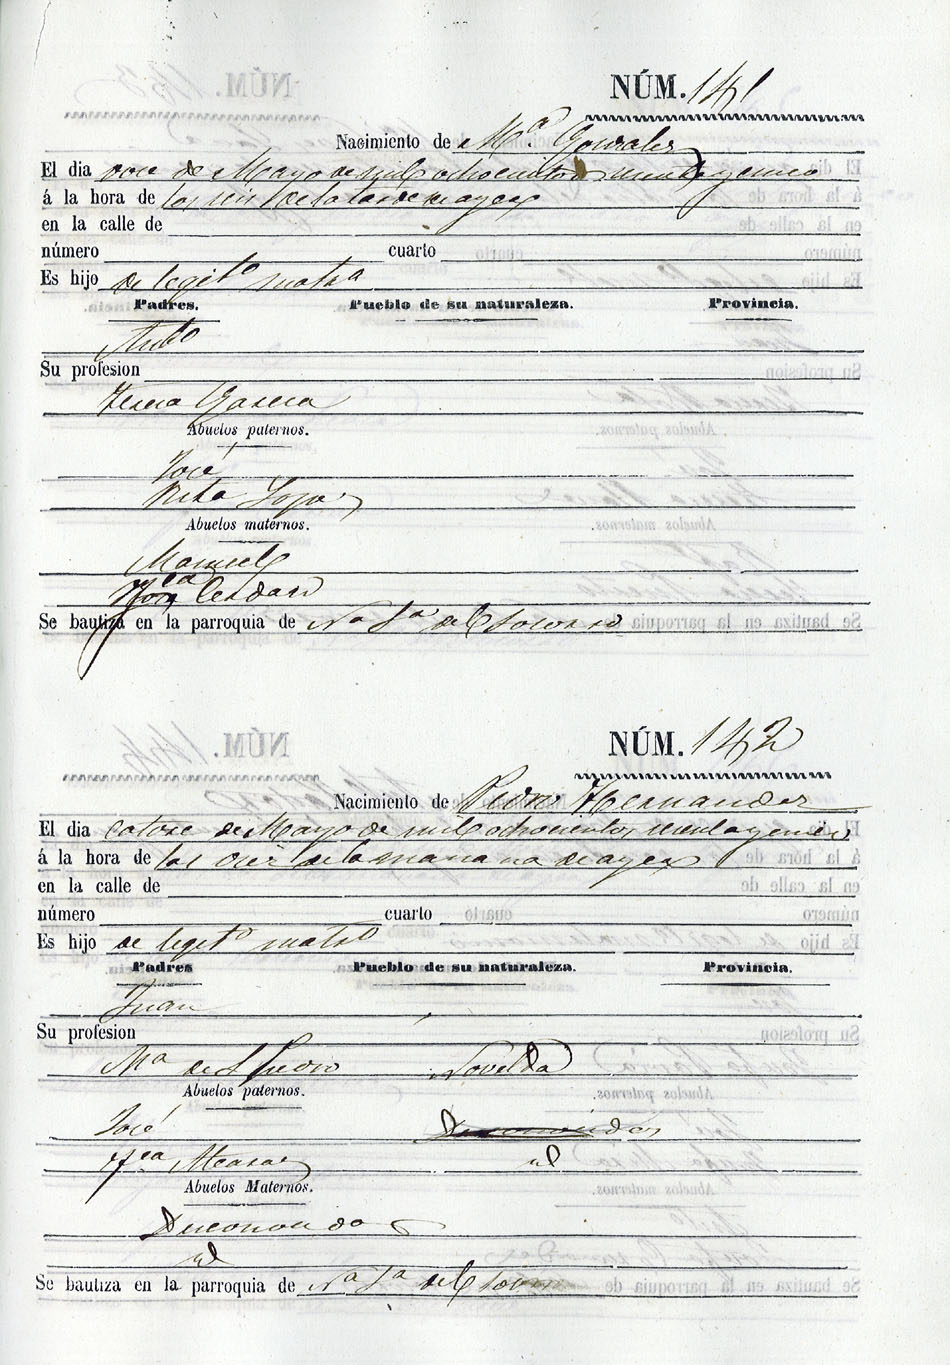 NÚM. 141
Nacimiento de Mª. Gonzales
El dia once de Mayo de mil ochocientos sesenta y cinco
á la hora de las seis de la tarde de ayer
en la calle de
número cuarto
Es hijo de legitº matrº
Padres. Pueblo de su naturaleza. Provincia.
Antº
Su profesion
Teresa Garcia
Abuelos paternos.
José
Rita Lopez
Abuelos maternos.
Manuel
Fca
Se bautiza en la parroquia de Nª Sª del Socorro
NÚM. 142
Nacimiento de Pedro Hernandez
El dia Catorce de Mayo de mil ochocientos sesenta y cinco
á la hora de las diez de la mañana de ayer
en la calle de
número cuarto
Es hijo de legitº matrº
Padres Pueblo de su naturaleza. Provincia.
Juan
Su profesion
Mª de S Pedro Novelda
Abuelos paternos.
José
Fca id
Abuelos Maternos.
Desconocidos
id
Se bautiza en la parroquia de Nª Sª del Socorro